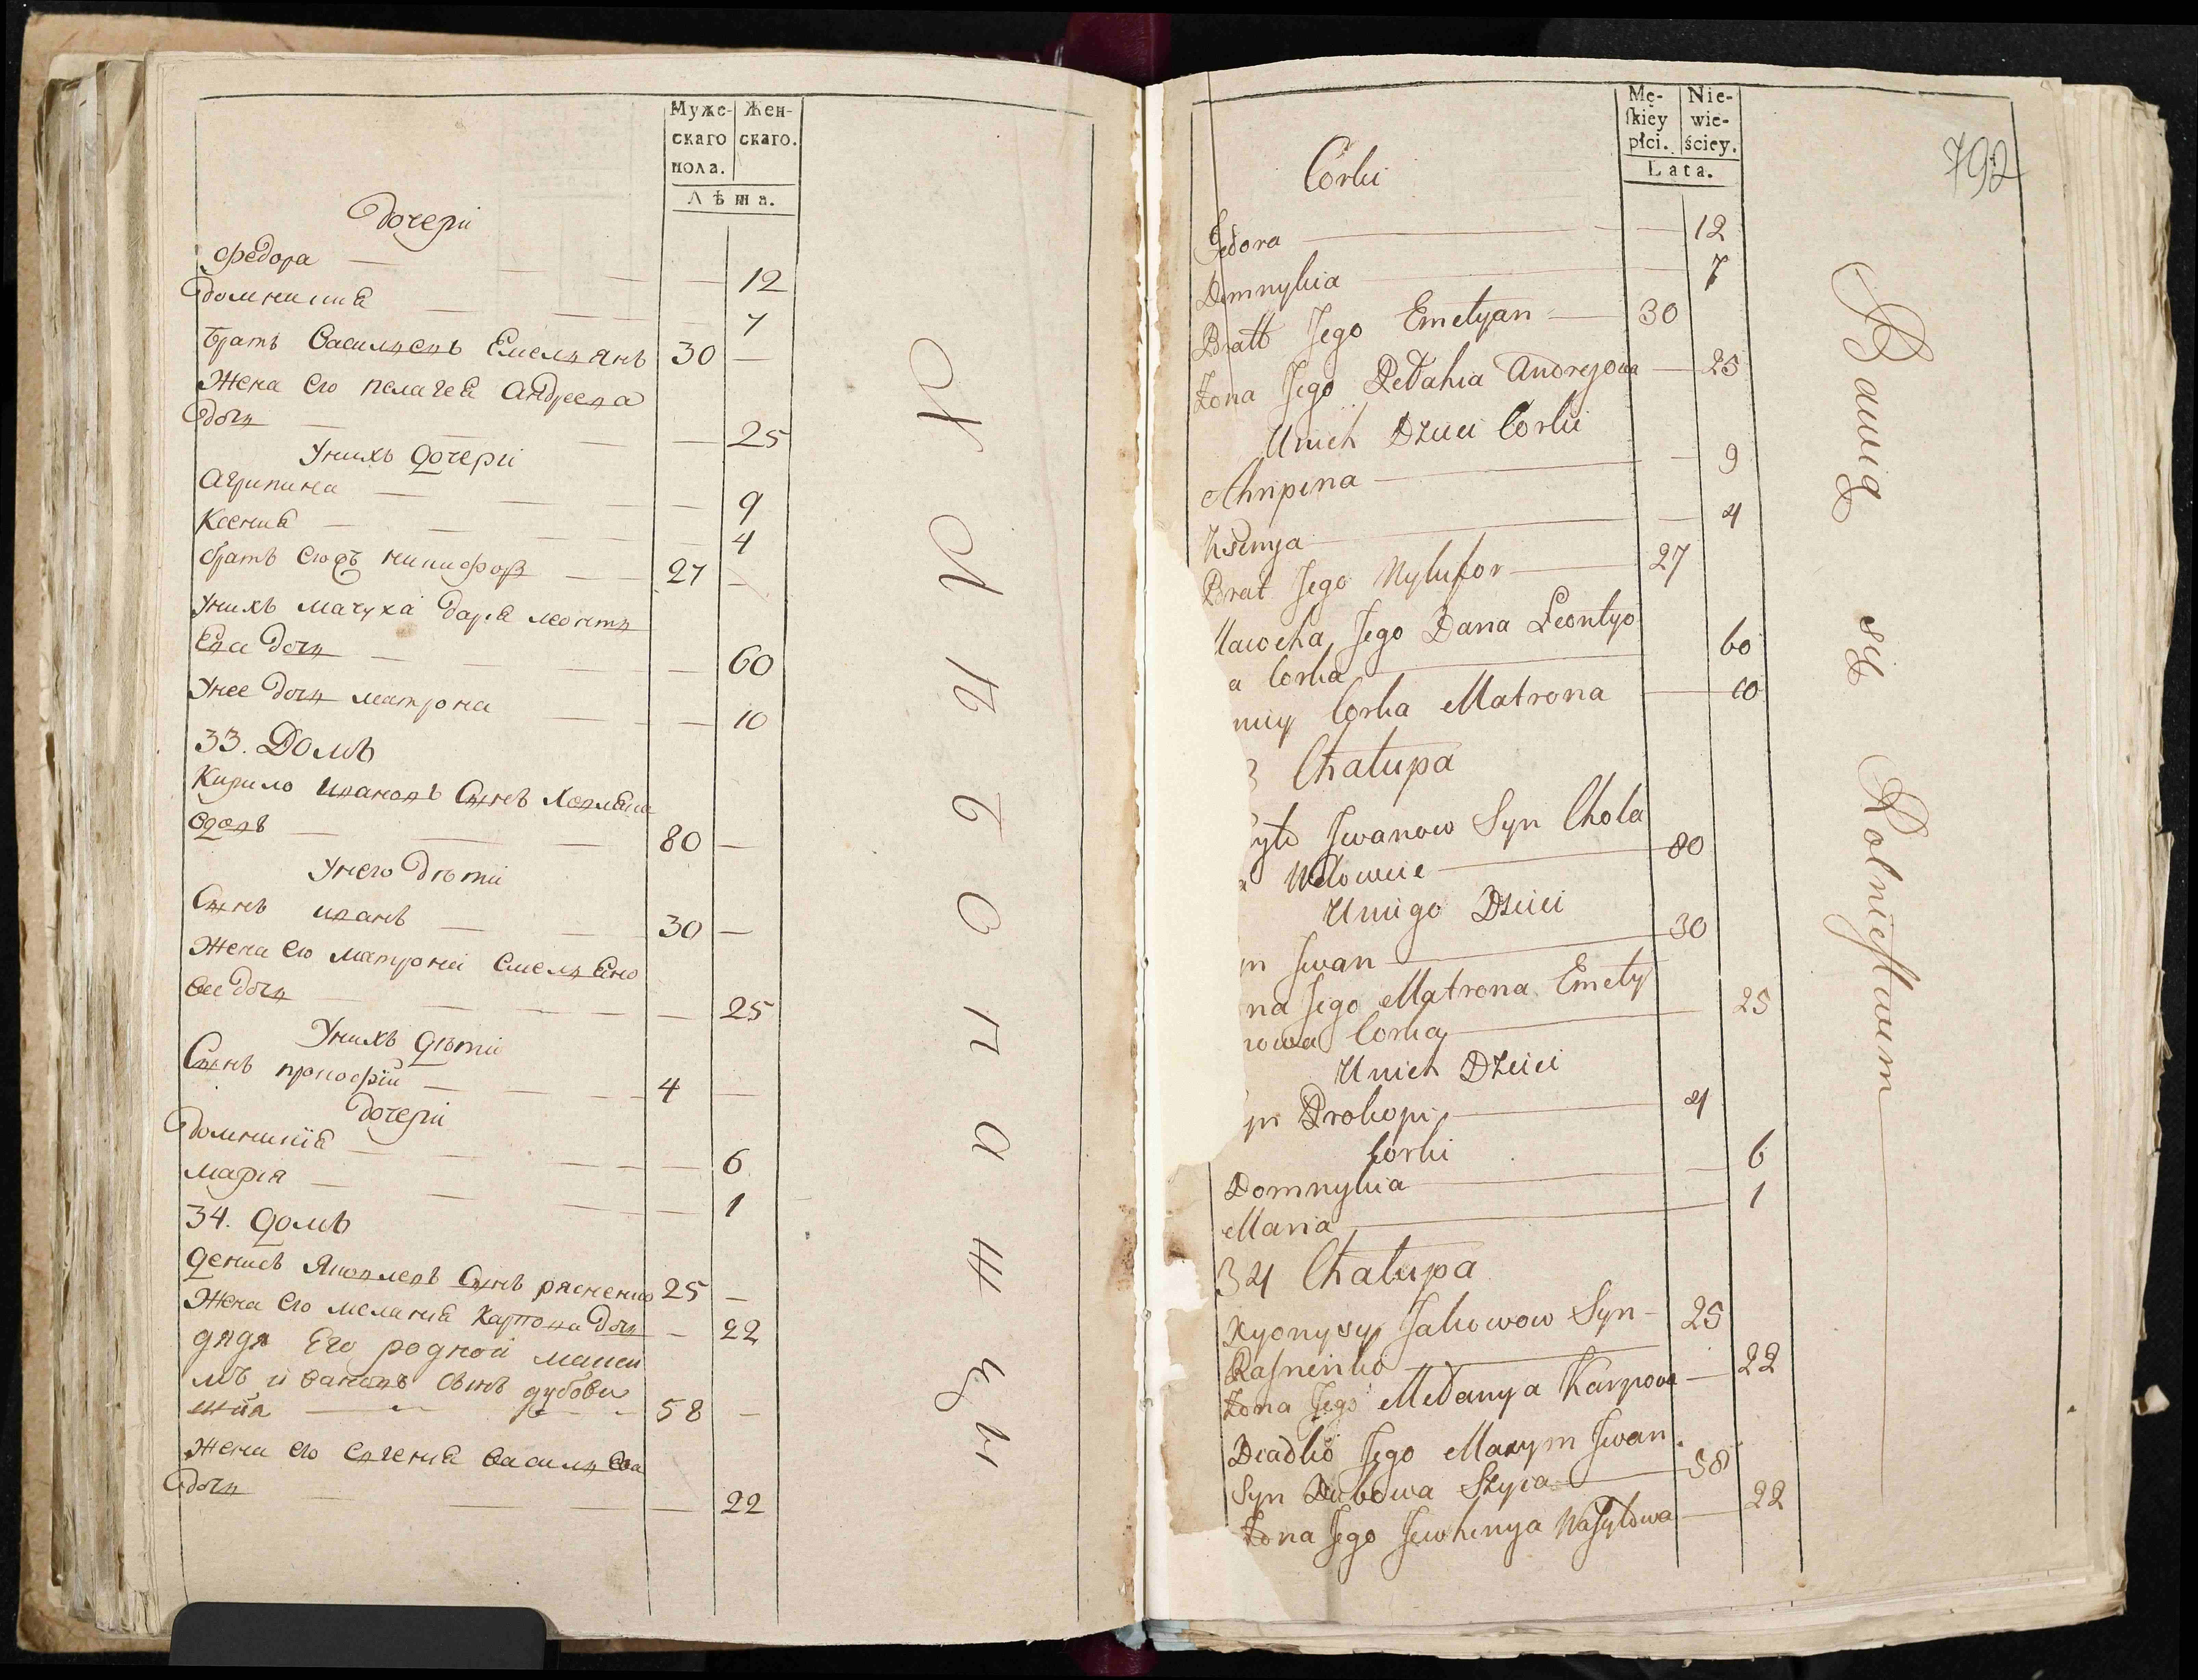 Муже-
скаго
пола.
Жен-
скаго.
Лѣта.
Дочери
Федора — 12
Домникия — 7
Братъ Васильевъ Емельянъ 30 —
Жена его пелагея Андреева
дочь — 25
У нихъ дочери
Агрипина — 9
Ксения — 4
братъ его никифоръ — 27 —
У нихъ мачуха дарья леонть
ева дочь — 60
У нее дочь матрона — 10
33. Домъ
Кирило ивановъ Сынъ
вдовъ — 80 —
У него дѣти
Сынъ иванъ — 30 —
Жена его матрона емельяно
ва дочь — 25
У нихъ дѣти
Сынъ прокофий — 4 —
дочери
Домникия — 6
мария — 1
34. домъ
денисъ Яковлевъ Сынъ расненко 25 —
Жена его мелания карпова дочь — 22
дядя Его родной макси
мъ Сынъ дубови
58 —
жена его евгения васильева
дочь — 22
Х л ѣ б о п а ш ц ы
Mę-
skiey
płci.
Nie-
wie-
ściey.
Lata.
792
Corki
Fedora — 12
Domnykia — 7
Bratt Jego Emelyan — 30
Żona Jego Pełahia Andrejowa — 25
Unich Dzieci Corki
Ahripina — 9
Ksenya — 4
Brat Jego Nykifor — 27
Macocha Jego Daria Leontyo
a Corka — 60
niey Corka Matrona — 10
3 Chałupa
yło Jwanow Syn Chola
a Wdowiec — 80
Uniego Dzieci
yn Jwan — 30
na Jego Matrona Emely
nowa Corka — 25
Unich Dzieci
yn Prokopi — 4
Corki
Domnykia — 6
Maria — 1
34 Chałupa
Dyonysy Jakowow Syn — 25
Rasnenko
Żona Jego Mełanya Karpowa — 22
Diadko Jego Maxym Jwan
Syn Dubowa Szyia — 58
Żona Jego Jewhenya Wasylowa — 22
Bawią się Rolnictwem